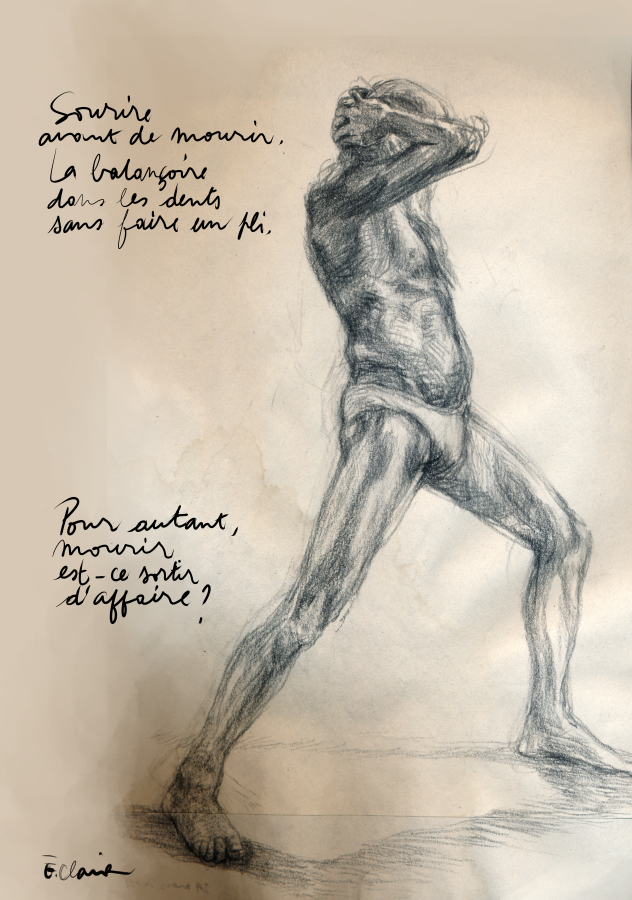 Sourire
avant de mourir.
La balançoire
dans les dents
sans faire un pli.
Pour autant,
mourir
est-ce sortir
d'affaire ?
E. Clair